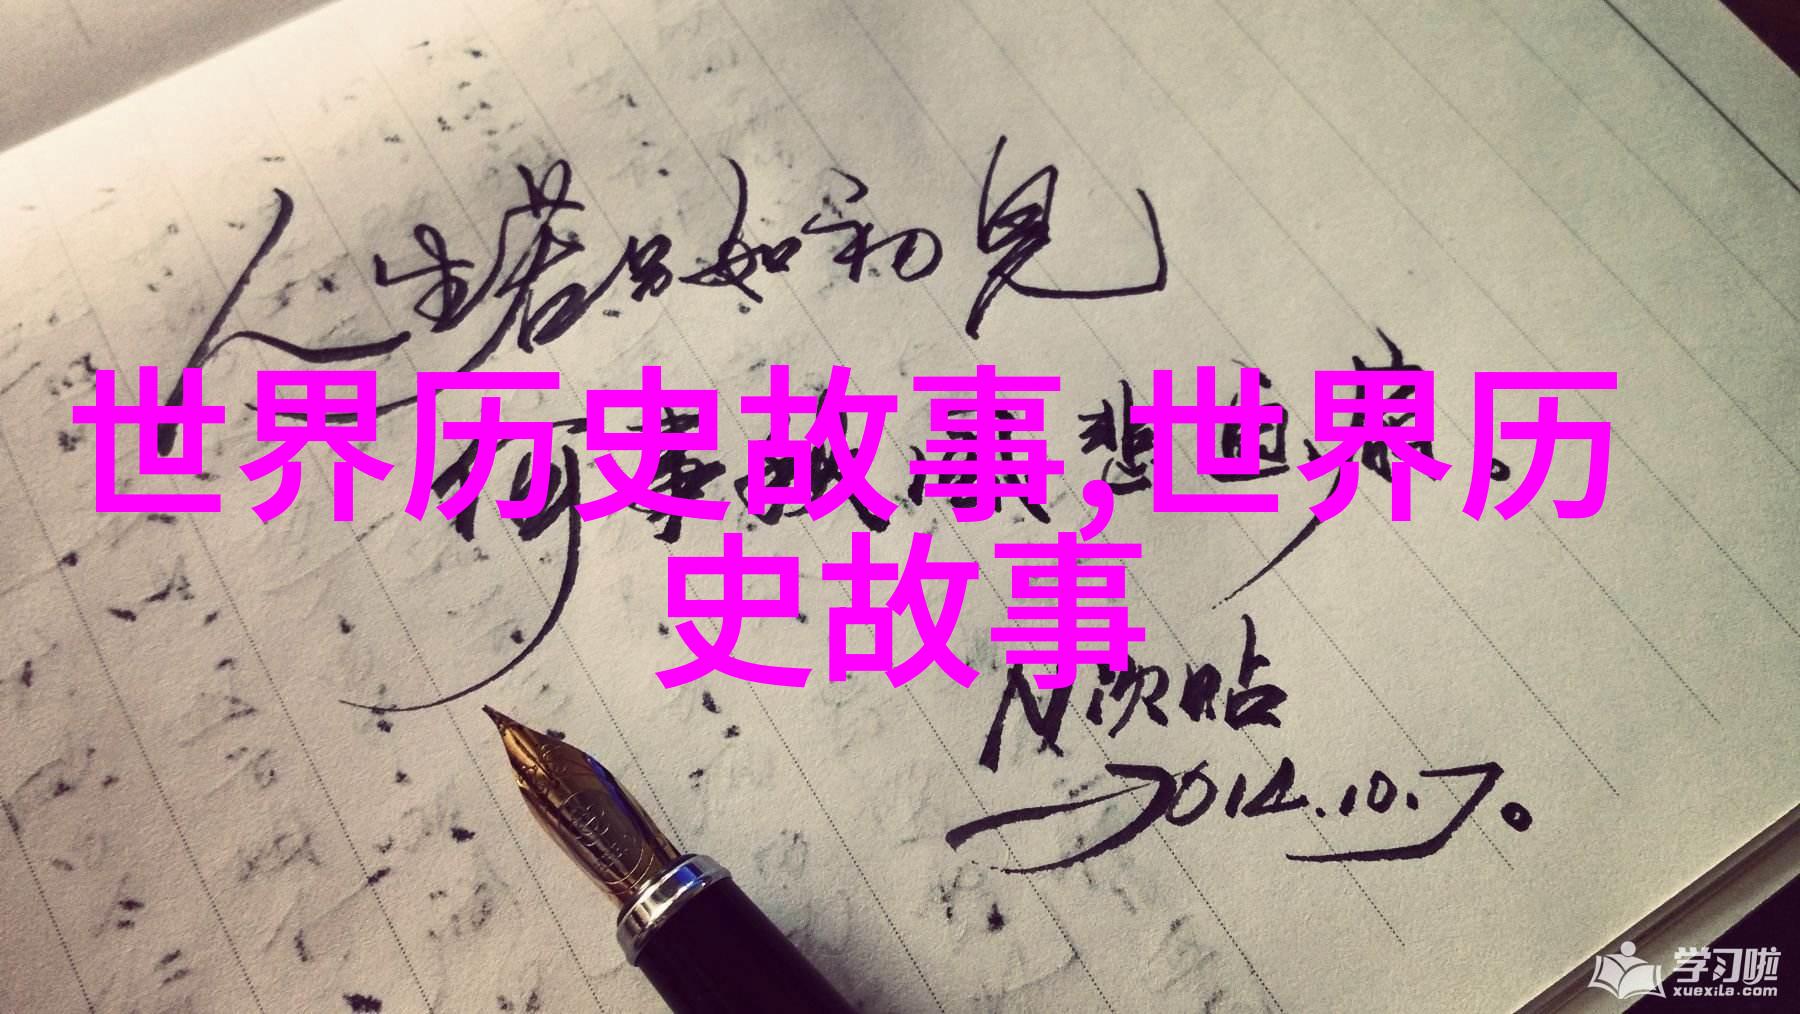 人生若只如初见
何事秋风悲画扇。
世界历史故事,世界历
史故事
N次贴
2014.10.7。
学习啦
xuexila.com